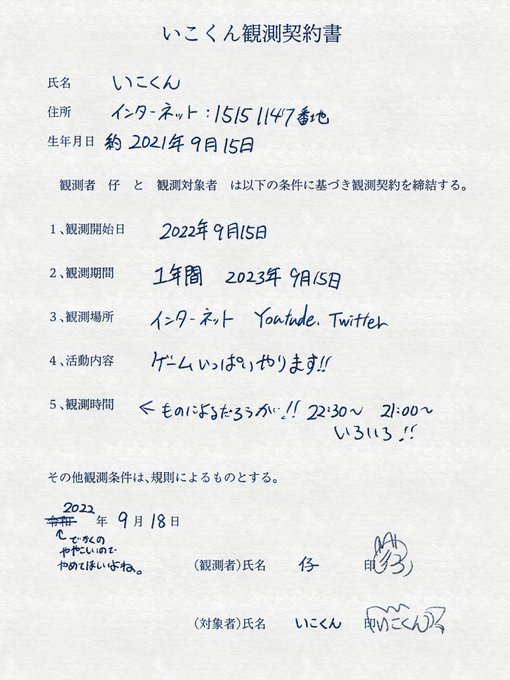 いこくん観測契約書
氏名 いこくん
住所 インターネット:15151147番地
生年月日 約2021年9月15日
観測者 仔 と 観測対象者 は以下の条件に基づき観測契約を締結する。
1、観測開始日 2022年9月15日
2、観測期間 1年間 2023年9月15日
3、観測場所 インターネット Youtude. Twitter
4、活動内容 ゲームいっぱいやります!!
5、観測時間 ←ものによるだろうが!! 22:30〜 21:00〜
いろいろ!!
その他観測条件は、規則によるものとする。
2022
令和 年 9月18日
↑でかくの
ややこいので
やめてほいよね。
(観測者)氏名 仔 印
(対象者)氏名 いこくん 印 いこくん